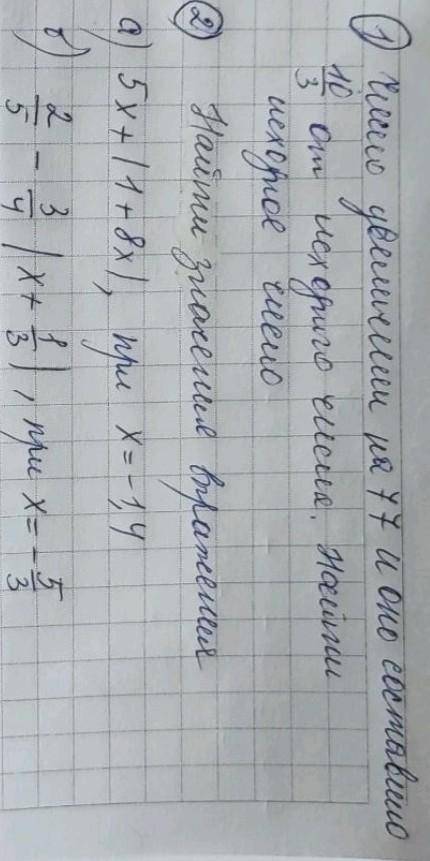 1) Число увеличили на 77 и оно составило
10/3 от исходного числа. Найти
исходное число
2) Найти значение выражения
а) 5x + |1 + 8x|, при x = -1,4
б) 2/5 - 3/4 |x + 1/3|, при x = -5/3